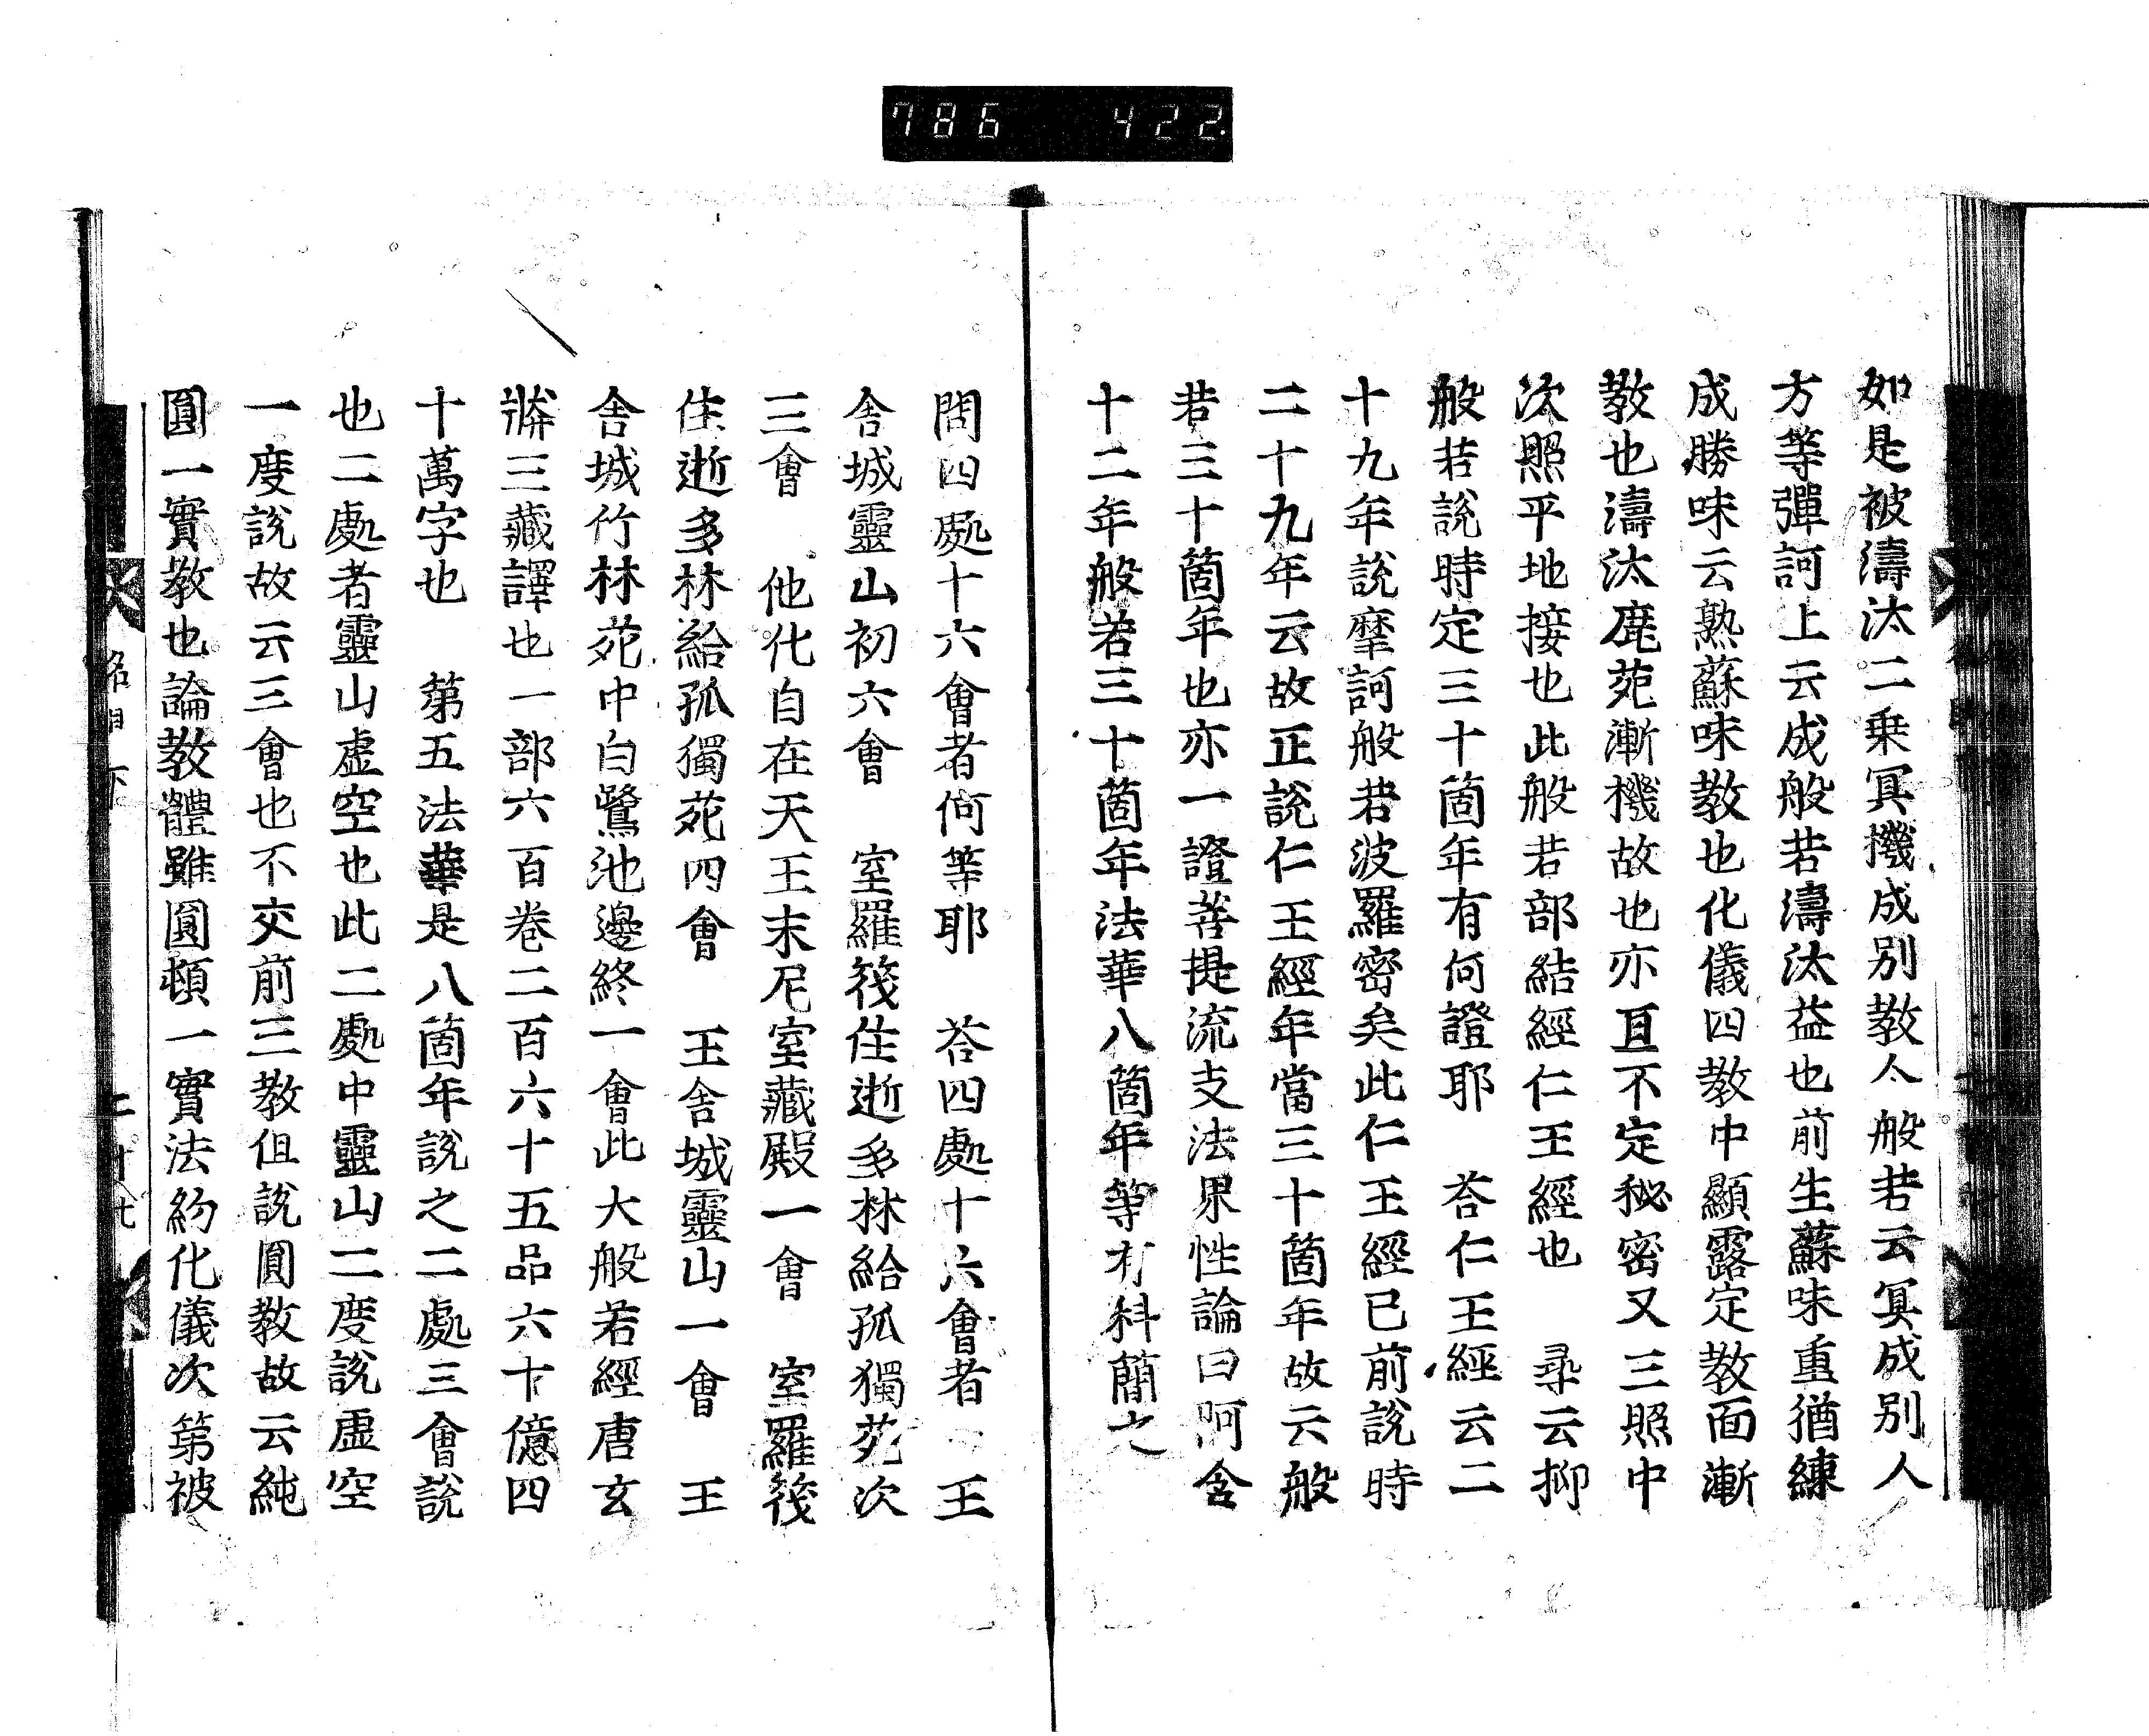 786 422.
如是被濤汰二乗冥機成別教人般若云冥成別人
方等彈訶上云成般若濤汰益也前生蘇味重猶練
成勝味云熟蘇味教也化儀四教中顯露定教面漸
教也濤汰鹿苑漸機故也亦亘不定秘密又三照中
次照平地接也此般若部結經仁王經也 尋云抑
般若說時定三十箇年有何證耶 荅仁王經云二
十九年說摩訶般若波羅密矣此仁王經已前說時
二十九年云故正說仁王經年當三十箇年故云般
若三十箇年也亦一證菩提流支法界性論曰阿含
十二年般若三十箇年法華八箇年等有科簡之
問四處十六會者何等耶 荅四處十六會者 王
舎城靈山初六會 室羅筏住逝多林給孤獨苑次
三會 他化自在天王末尼室藏殿一會 室羅筏
住逝多林給孤獨苑四會 王舎城靈山一會 王
舎城竹林苑中白鷺池邊終一會此大般若經唐玄
弉三藏譯也一部六百卷二百六十五品六十億四
十萬字也 第五法華是八箇年說之二處三會說
也二處者靈山虚空也此二處中靈山二度說虚空
一度說故云三會也不交前三教但說圓教故云純
圓一實教也論教體雖圓頓一實法約化儀次第被
名目下
二十七